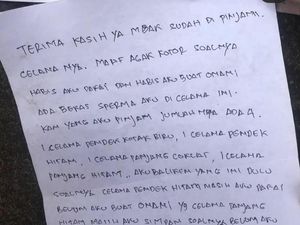 TERIMA KASIH YA MBAK SUDAH DI PINJAMI
CELANA NYA. MAAF AGAK KOTOR SOALNYA
HABIS AKU PAKAI DAN HABIS AKU BUAT OMANI
ADA BEKAS SPERMA AKU DI CELANA INI.
KAN YANG AKU PINJAM JUMLAH NYA ADA 4.
1 CELANA PENDEK KOTAK BIRU, 1 CELANA PENDEK
HITAM, 1 CELANA PANJANG COKLAT, 1 CELANA
PANJANG HITAM.. AKU BALIKEN YANG INI DULU
SOALNYA CELANA PENDEK HITAM MASIH AKU PAKAI
BELUM AKU BUAT OMANI YG CELANA PANJANG
HITAM MASIH AKU SIMPAN SOALNYA BELUM AKU